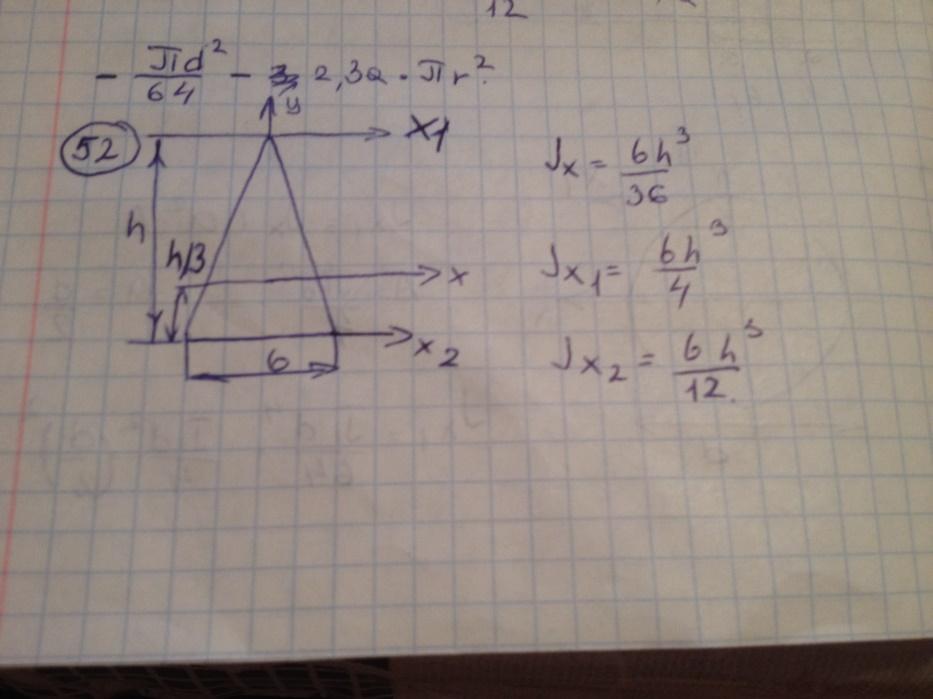 12
- πd² / 64 - 2,3a · πr²
y
52
x1
h
h/3
x
x2
b
Jx = bh³ / 36
Jx1 = bh³ / 4
Jx2 = bh³ / 12.